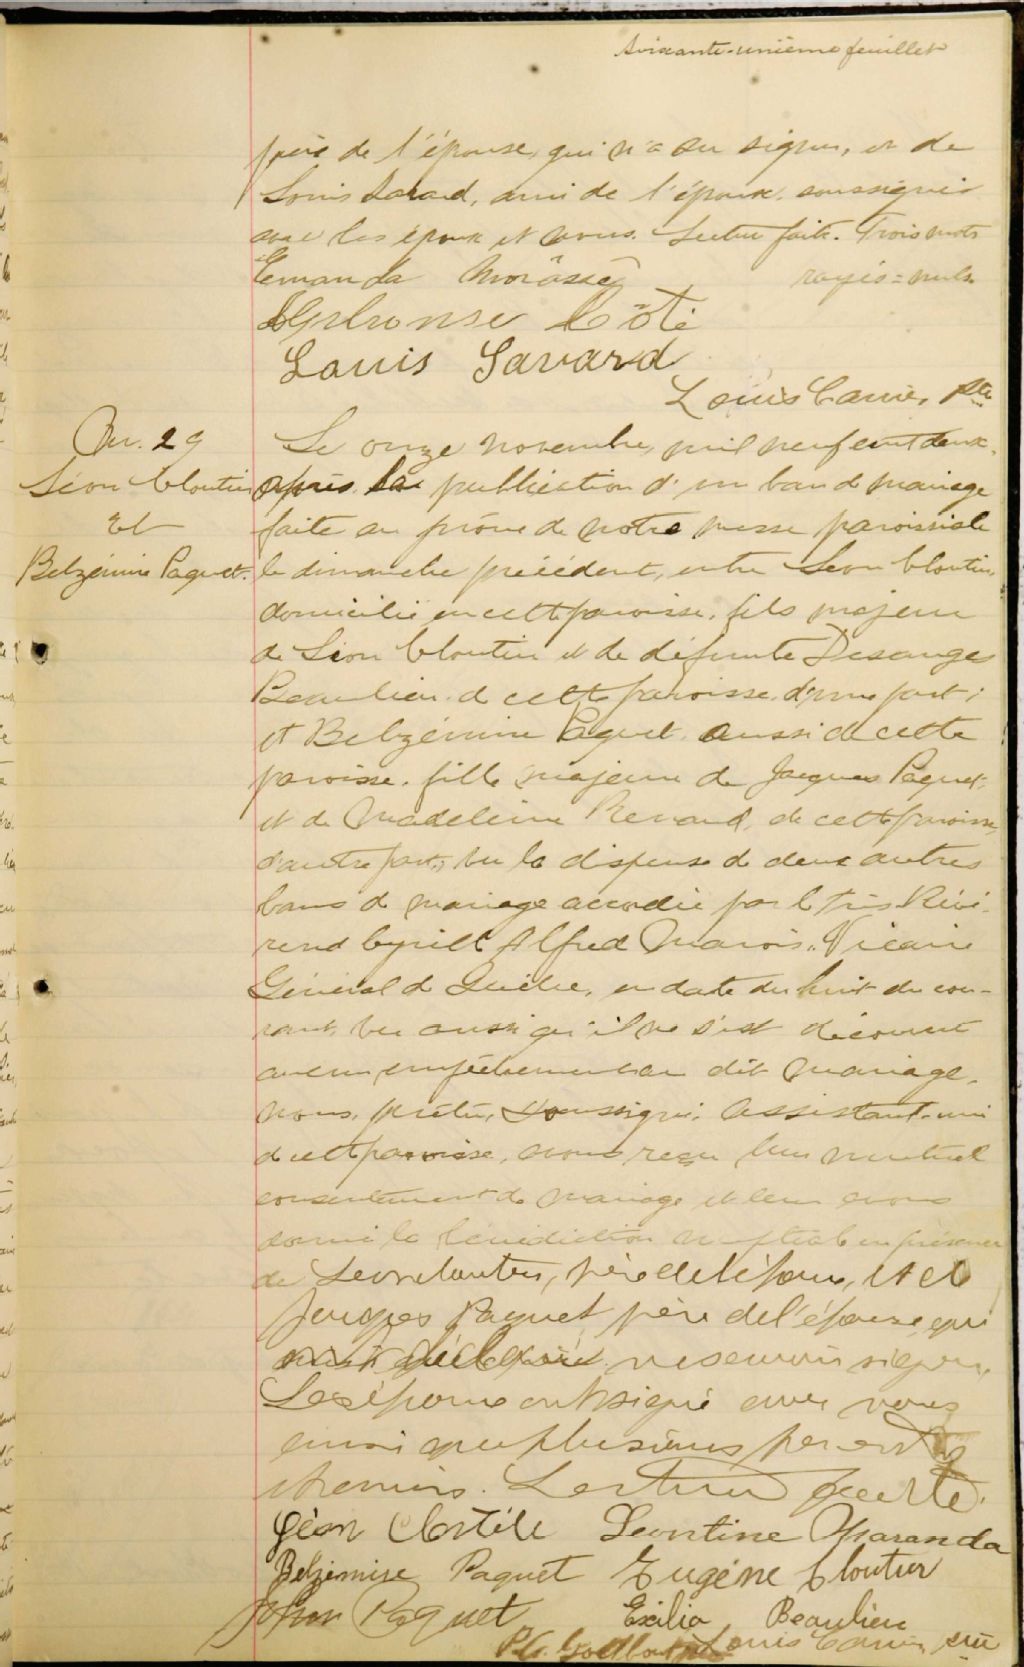 Soixante-unième feuillet
père de l'épouse, qui n'a su signer, et de
Louis Savard, ami de l'époux, soussignés
avec les époux et nous. Lecture faite. Trois mots
rayés = nuls.
Emanda Morässe
Alphonse Côté
Louis Savard
Louis Carrier, ptre
M. 29
Léon Cloutier
Et
Belzémire Paquet.
Le onze novembre, mil neuf cent deux,
après la publication d'un ban de mariage
faite au prône de notre messe paroissiale
le dimanche précédent, entre Léon Cloutier,
domicilié en cette paroisse, fils majeur
de Léon Cloutier et de défunte Desanges
Beaulieu de cette paroisse, d'une part;
et Belzémire Paquet, aussi de cette
paroisse, fille majeure de Jacques Paquet
et de Madeleine Renaud, de cette paroisse,
d'autre part; vu la dispense de deux autres
bans de mariage accordée par le très Révé-
rend Cyrille Alfred Marois, Vicaire
Général de Québec, en date du huit du cou-
rant, vu aussi qu'il ne s'est découvert
aucun empêchement au dit mariage,
nous, prêtre, soussigné, assistant-
de cette paroisse, avons reçu leur mutuel
consentement de mariage et leur avons
donné la bénédiction nuptiale en présence
de Léon Cloutier, père de l'époux, et de
Jacques Paquet père de l'épouse, qui
ne savoir signer.
Les époux ont signé avec nous
ainsi que plusieurs parents
Lecture faite.
Léon Cloutier Léontine Maranda
Belzémire Paquet Eugène Cloutier
Paquet Exilia Beaulieu
Louis Carrier, ptre